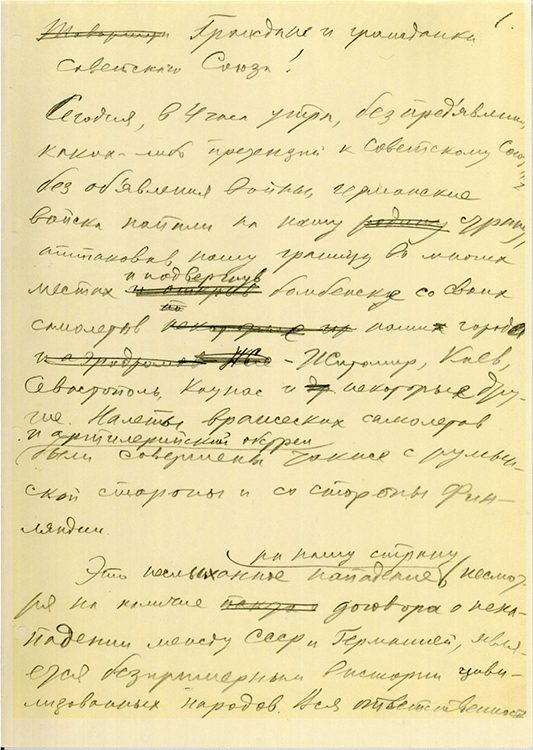 1.
Товарищи Граждане и гражданки
Советского Союза!
Сегодня, в 4 часа утра, без пред'явления
каких-либо претензий к Советскому Союзу,
без об'явления войны, германские
войска напали на нашу родину страну,
аттаковав нашу границу во многих
и подвергнув
местах бомбежке со своих
самолетов наши города
- Житомир, Киев,
Севастополь, Каунас и др некоторые дру-
гие. Налеты вражеских самолетов
и артилерийский обстрел
были совершены также с румын-
ской стороны и со стороны Фин-
ляндии.
на нашу страну
Это неслыханное нападение, несмот-
ря на наличие договора о нена-
падении между СССР и Германией, явля-
ется беспримерным в истории циви-
лизованных народов. Вся ответственность